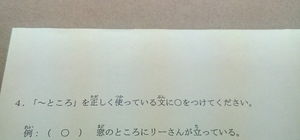 4．「～ところ」を正しく使っている文に○をつけてください。
例：（ ○ ） 窓のところにリーさんが立っている。